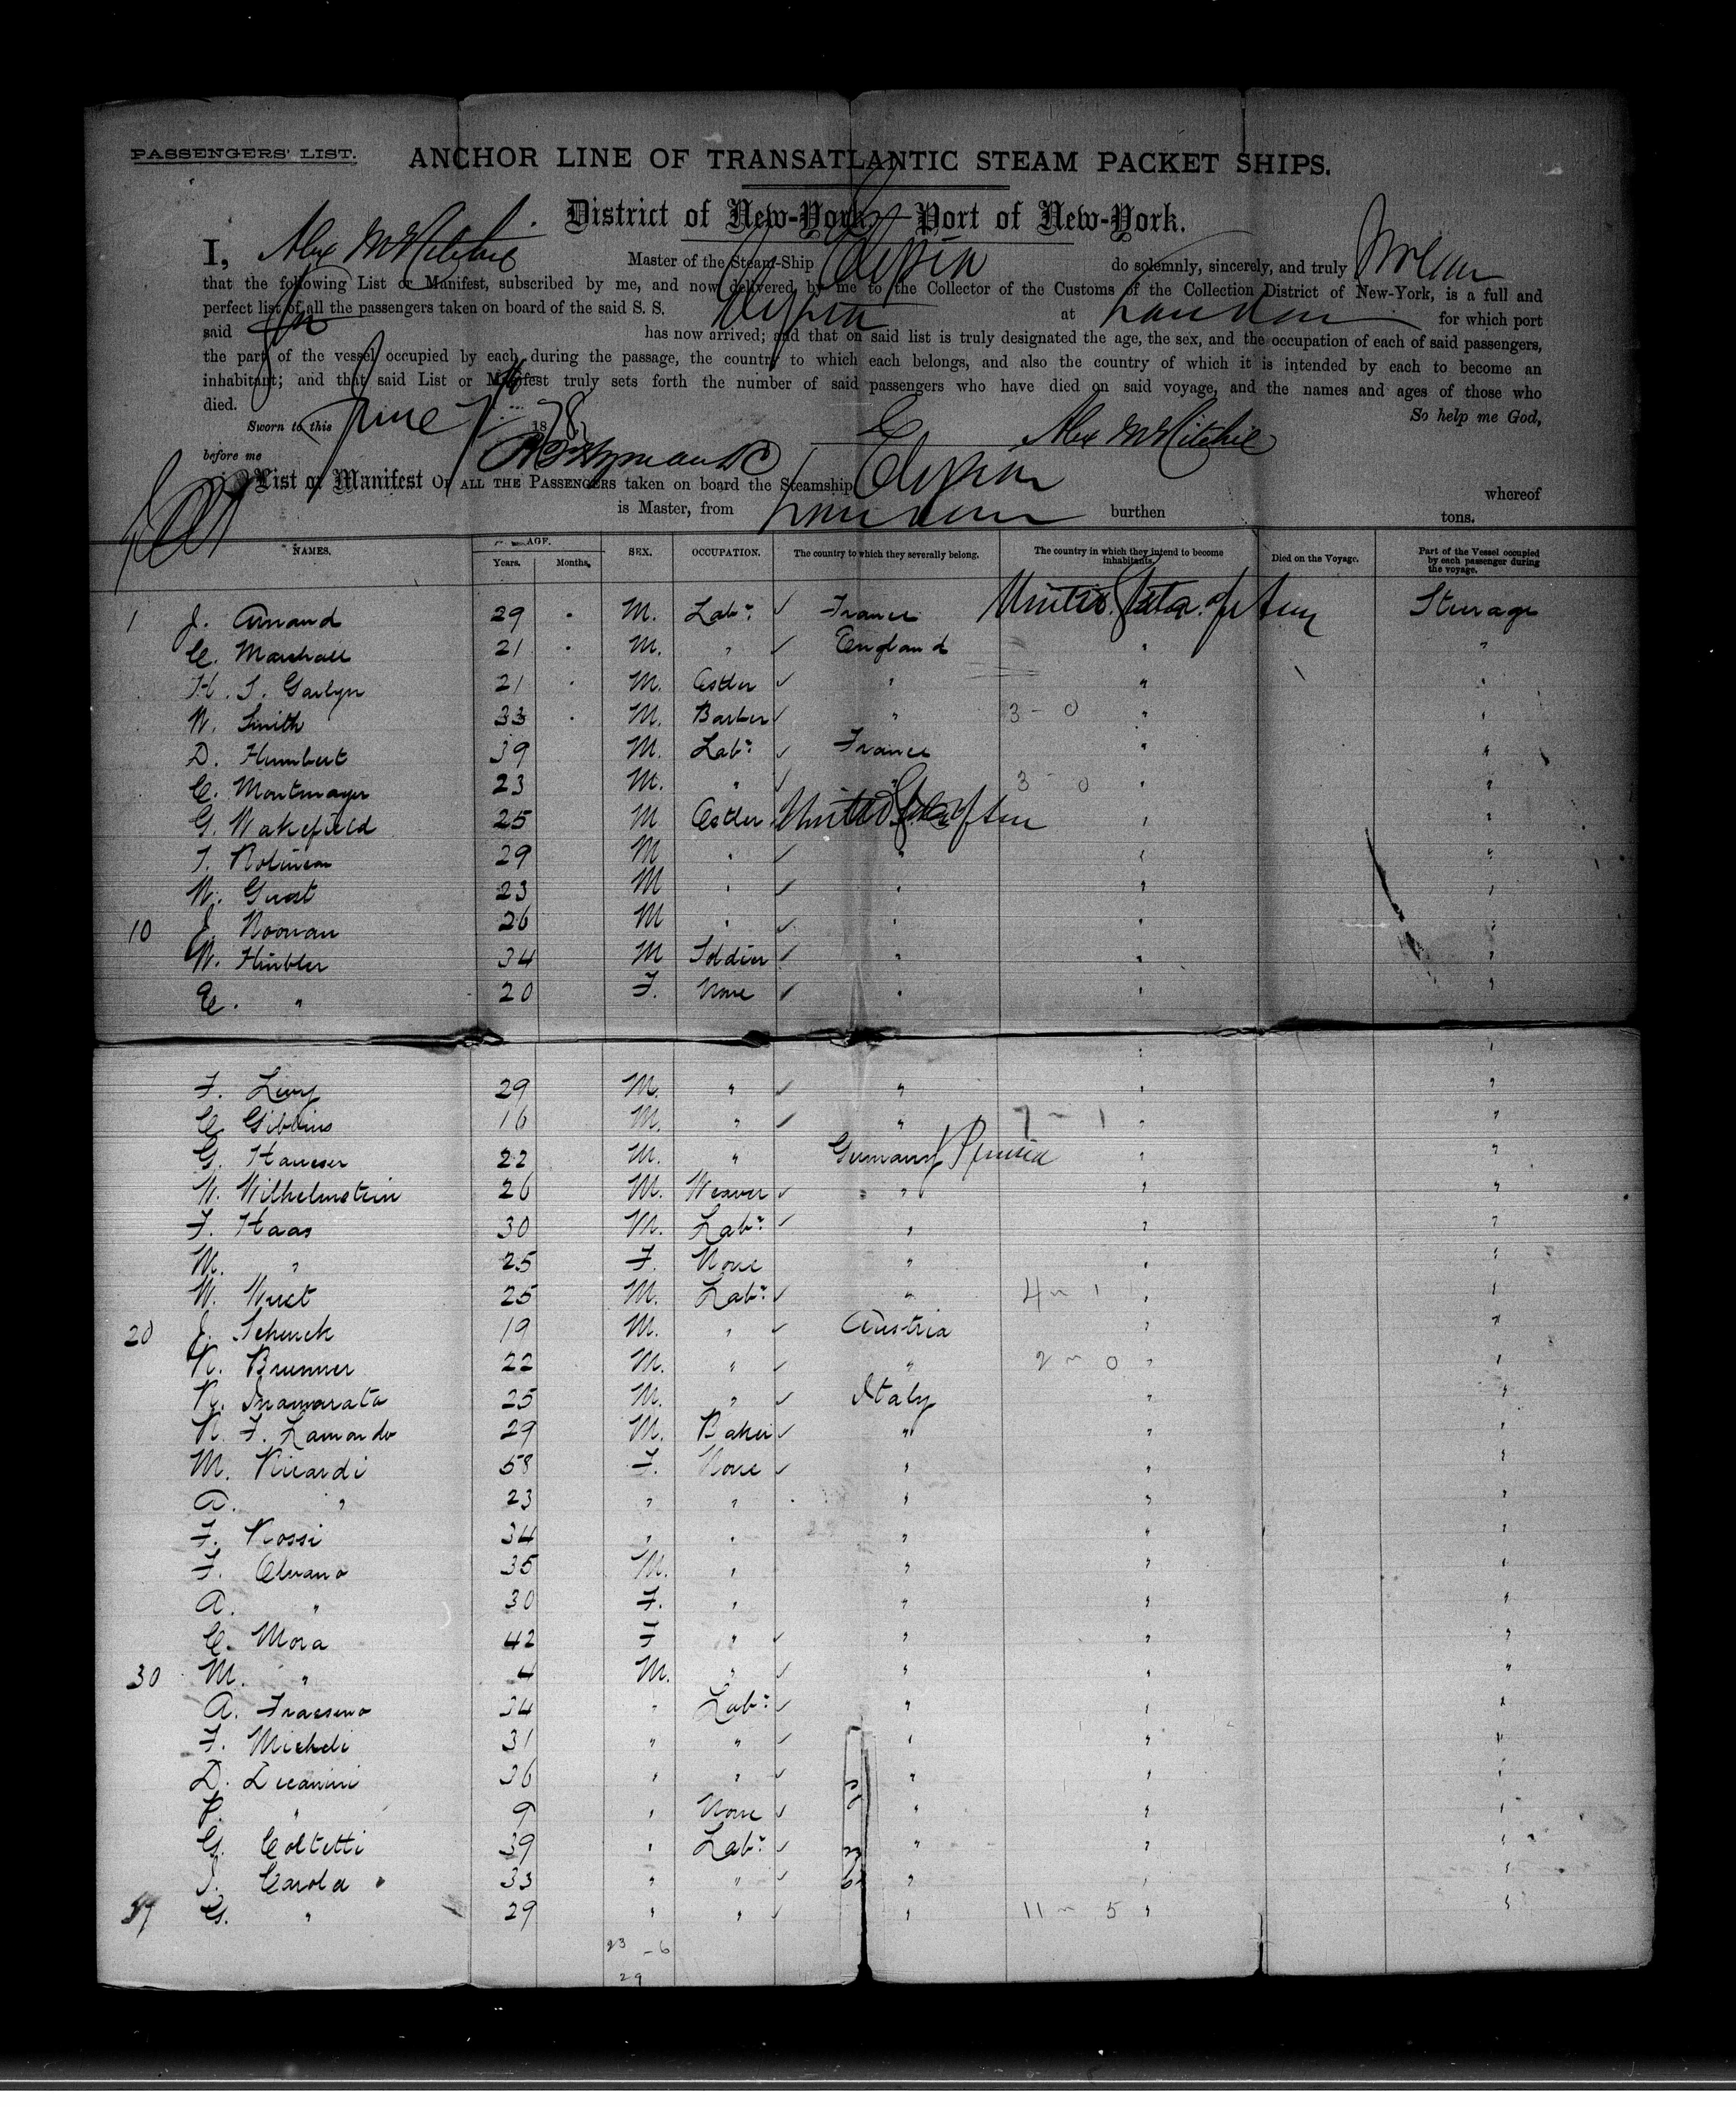 PASSENGERS' LIST.
ANCHOR LINE OF TRANSATLANTIC STEAM PACKET SHIPS.
District of New-York.—Port of New-York.
I, Alex McRitchie Master of the Steam-Ship Elysia do solemnly, sincerely, and truly Swear
that the following List or Manifest, subscribed by me, and now delivered by me to the Collector of the Customs of the Collection District of New-York, is a full and
perfect list of all the passengers taken on board of the said S. S. Elysia at London for which port
said has now arrived; and that on said list is truly designated the age, the sex, and the occupation of each of said passengers,
the part of the vessel occupied by each during the passage, the country to which each belongs, and also the country of which it is intended by each to become an
inhabitant; and that said List or Manifest truly sets forth the number of said passengers who have died on said voyage, and the names and ages of those who
died. So help me God,
Sworn to this June 1878
before me Alex McRitchie
List or Manifest OF ALL THE PASSENGERS taken on board the Steamship Elysia whereof
is Master, from London burthen tons.
NAMES. AGE. Years. Months. SEX. OCCUPATION. The country to which they severally belong. The country in which they intend to become inhabitants. Died on the Voyage. Part of the Vessel occupied by each passenger during the voyage.
1 J. Arnaud 29 M. Labr France United States of Am Steerage
C. Marshall 21 M. " England " "
H. S. 21 M. Ostler " " "
W. Smith 33 M. Barber " 3-0 " "
D. Humbert 39 M. Labr France " "
C. Montmayer 23 M. " " 3 0 " "
G. Wakefield 25 M Ostler United States of Am " "
T. Robinson 29 M " " " "
W. Guest 23 M " " " "
10 J. Noonan 26 M " " " "
W. 34 M Soldier " " "
E. " 20 F. None " " "
F. Levy 29 M. " " " "
C. Gibbins 16 M. " " 7-1 " "
G. 22 M. " Germany Prussia " "
W. Wilhelmstein 26 M. Weaver " " "
F. Haas 30 M. Labr " " "
M. " 25 F. None " " "
W. 25 M. Labr " 4-1 " "
20 J. Schenck 19 M. " Austria " "
R. Brunner 22 M. " " 2-0 " "
R. Inamarata 25 M. " Italy " "
R. F. Lamando 29 M. Baker " " "
M. Ricardi 58 F. None " " "
A. " 23 " " " " "
F. Rossi 34 " " " " "
F. 35 M. " " " "
A. " 30 F. " " " "
C. Mora 42 F " " " "
30 M. " 4 M. " " " "
A. 34 " Labr " " "
F. Micheli 31 " " " " "
D. 36 " " " " "
P. " 9 " None " " "
G. Coltetti 39 " Labr " " "
J. Carola 33 " " " " "
37 G. " 29 " " " 11-5 " "
23 - 6
29